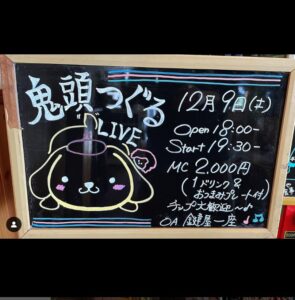 鬼頭つぐる
LIVE
12月9日(土)
Open 18:00-
Start 19:30-
MC 2,000円
(1ドリンク&
おつまみプレート付)
チップ大歓迎〜♪
OA 鍵屋一座